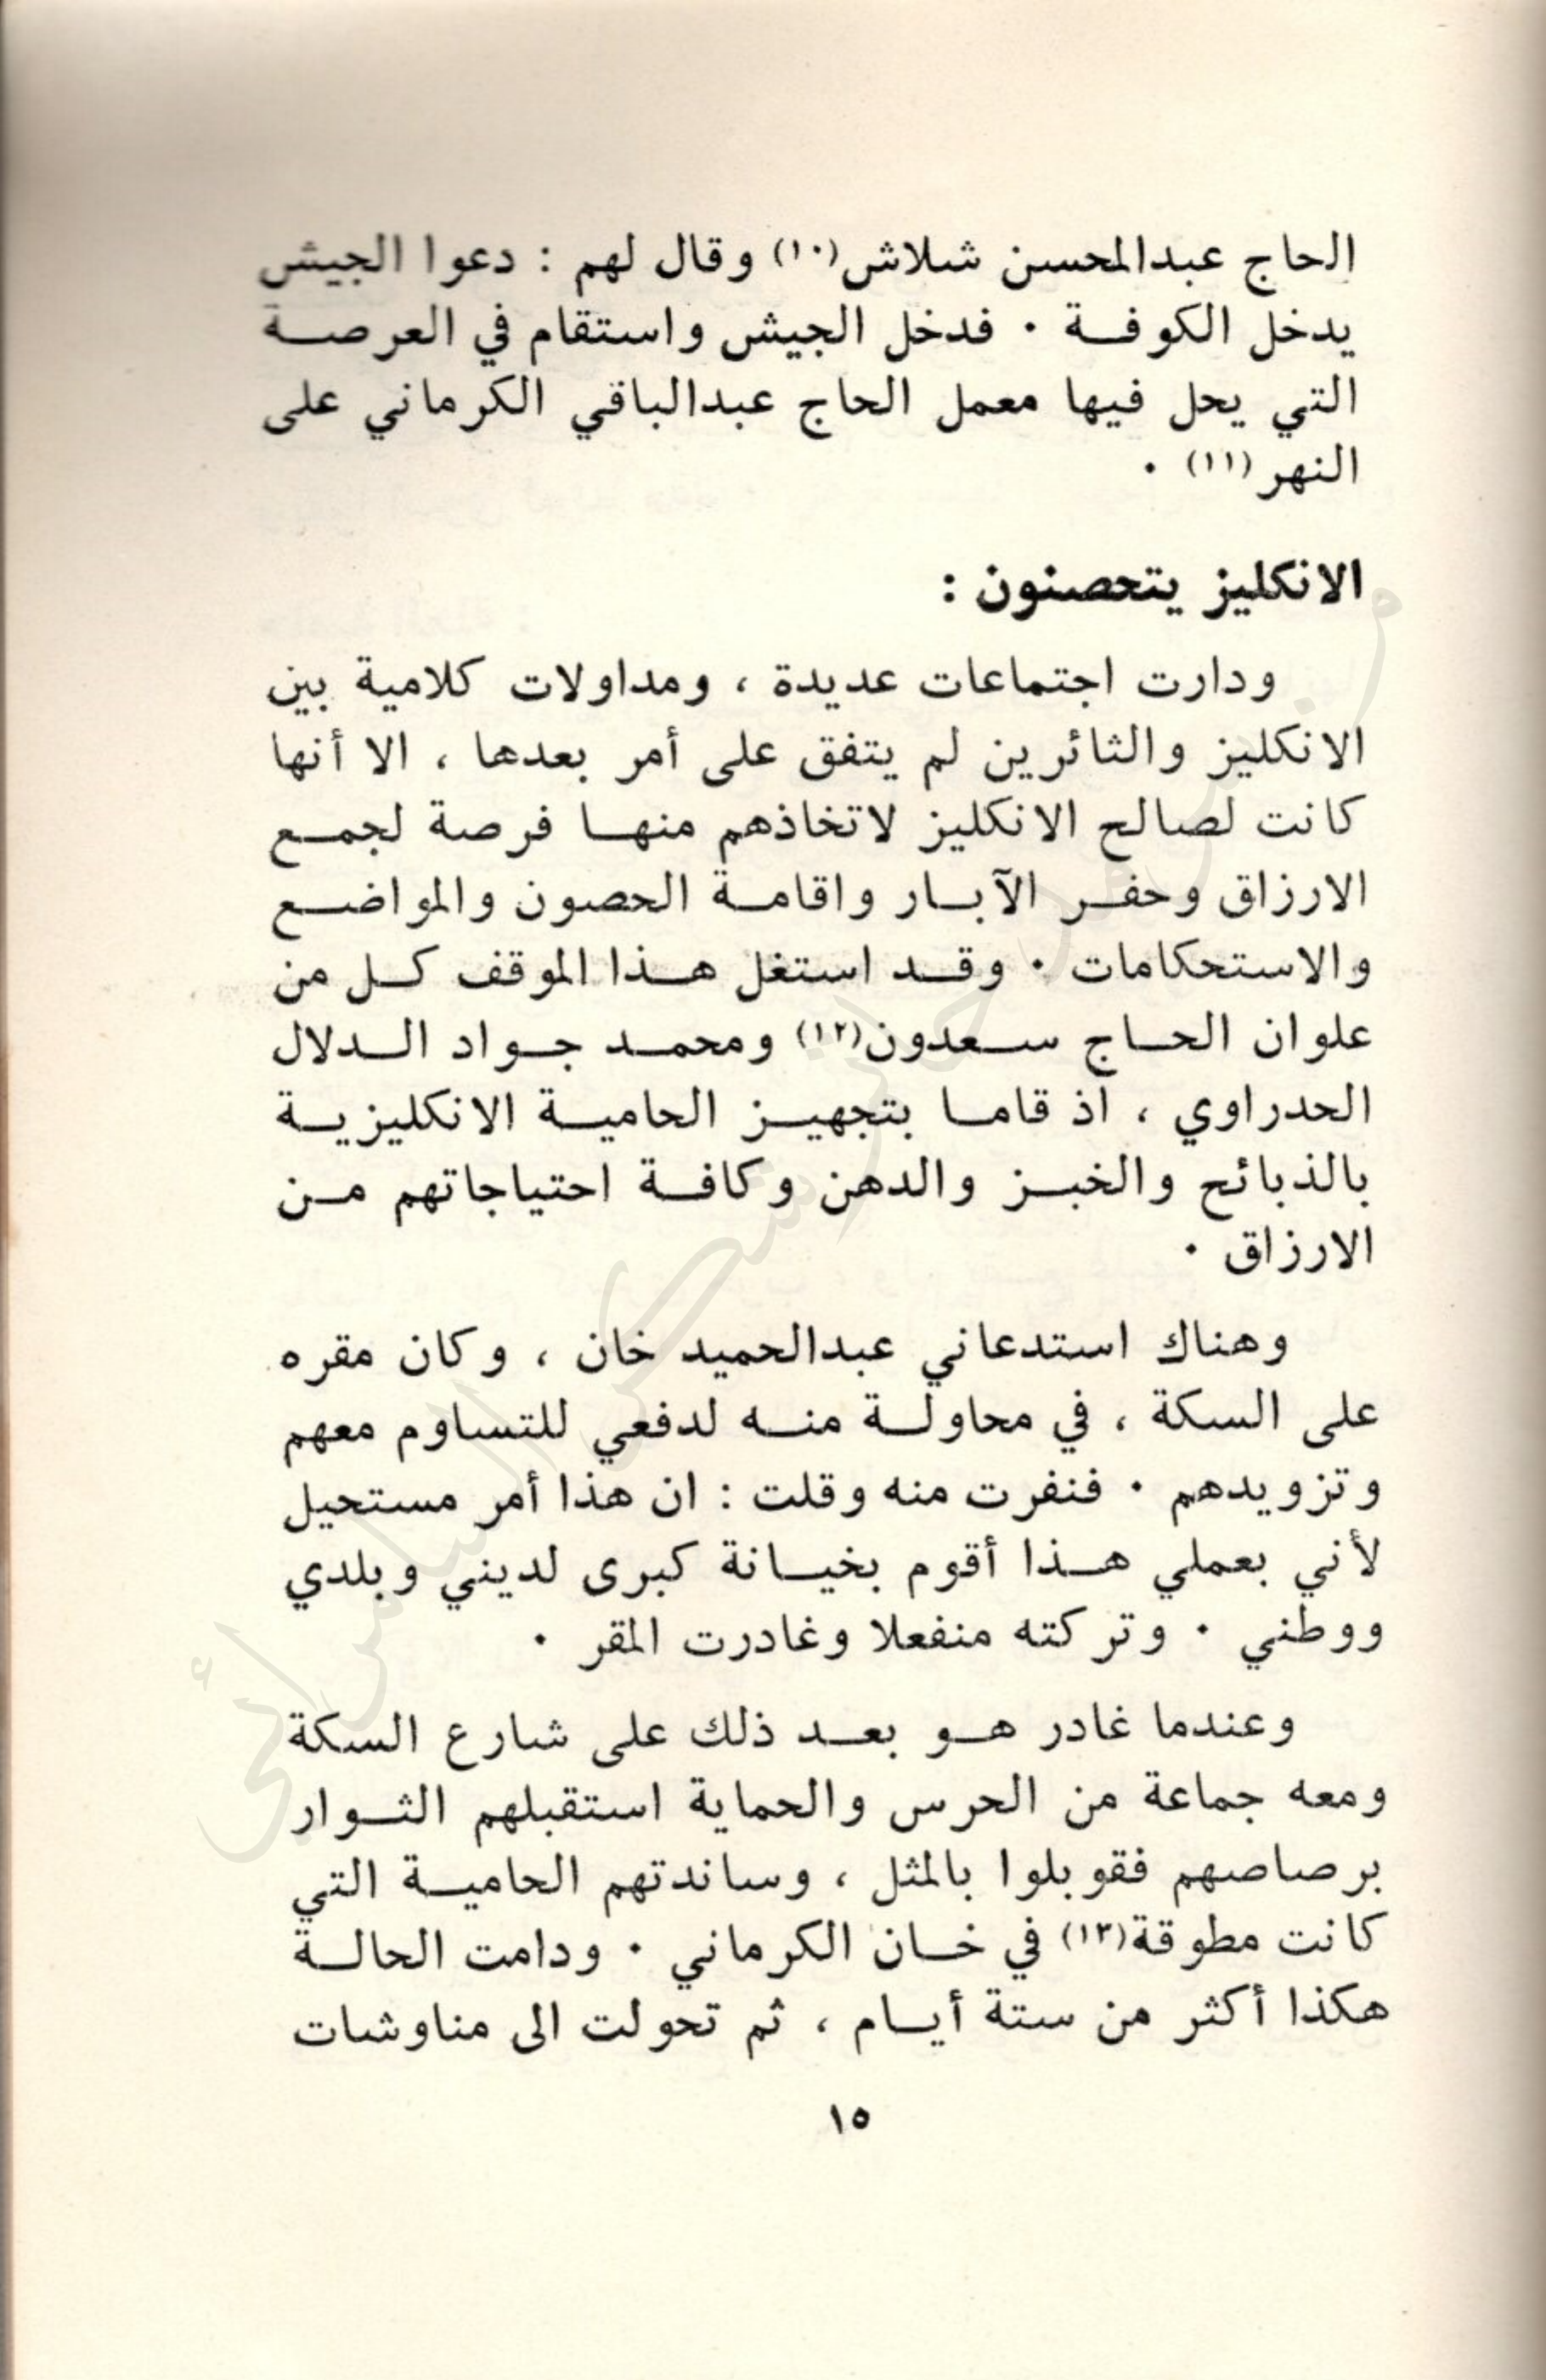 الحاج عبدالمحسن شلاش(١٠) وقال لهم : دعوا الجيش
يدخل الكوفة . فدخل الجيش واستقام في العرصة
التي يحل فيها معمل الحاج عبدالباقي الكرماني على
النهر(١١) .
الانكليز يتحصنون :
ودارت اجتماعات عديدة ، ومداولات كلامية بين
الانكليز والثائرين لم يتفق على أمر بعدها ، الا أنها
كانت لصالح الانكليز لاتخاذهم منها فرصة لجمع
الارزاق وحفر الآبار واقامة الحصون والمواضع
والاستحكامات . وقد استغل هذا الموقف كل من
علوان الحاج سعدون(١٢) ومحمد جواد الدلال
الحدراوي ، اذ قاما بتجهيز الحامية الانكليزية
بالذبائح والخبز والدهن وكافة احتياجاتهم من
الارزاق .
وهناك استدعاني عبدالحميد خان ، وكان مقره
على السكة ، في محاولة منه لدفعي للتساوم معهم
وتزويدهم . فنفرت منه وقلت : ان هذا أمر مستحيل
لأني بعملي هذا أقوم بخيانة كبرى لديني وبلدي
ووطني . وتركته منفعلا وغادرت المقر .
وعندما غادر هو بعد ذلك على شارع السكة
ومعه جماعة من الحرس والحماية استقبلهم الثوار
برصاصهم فقوبلوا بالمثل ، وساندتهم الحامية التي
كانت مطوقة(١٣) في خان الكرماني . ودامت الحالة
هكذا أكثر من ستة أيام ، ثم تحولت الى مناوشات
١٥